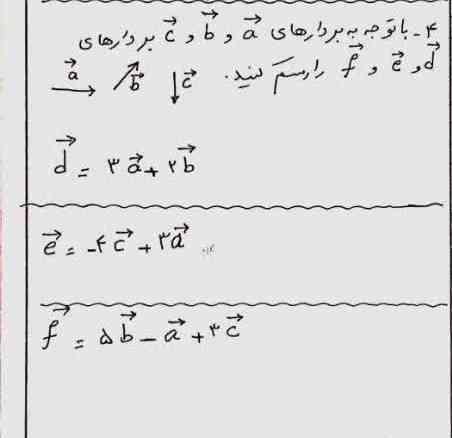 ۴- با توجه به بردارهای a⃗ و b⃗ و c⃗ بردارهای
d⃗ و e⃗ و f⃗ را رسم کنید.
a⃗ b⃗ c⃗
d⃗ = ۳a⃗ + ۲b⃗
e⃗ = -۴c⃗ + ۳a⃗
f⃗ = ۵b⃗ - a⃗ + ۳c⃗